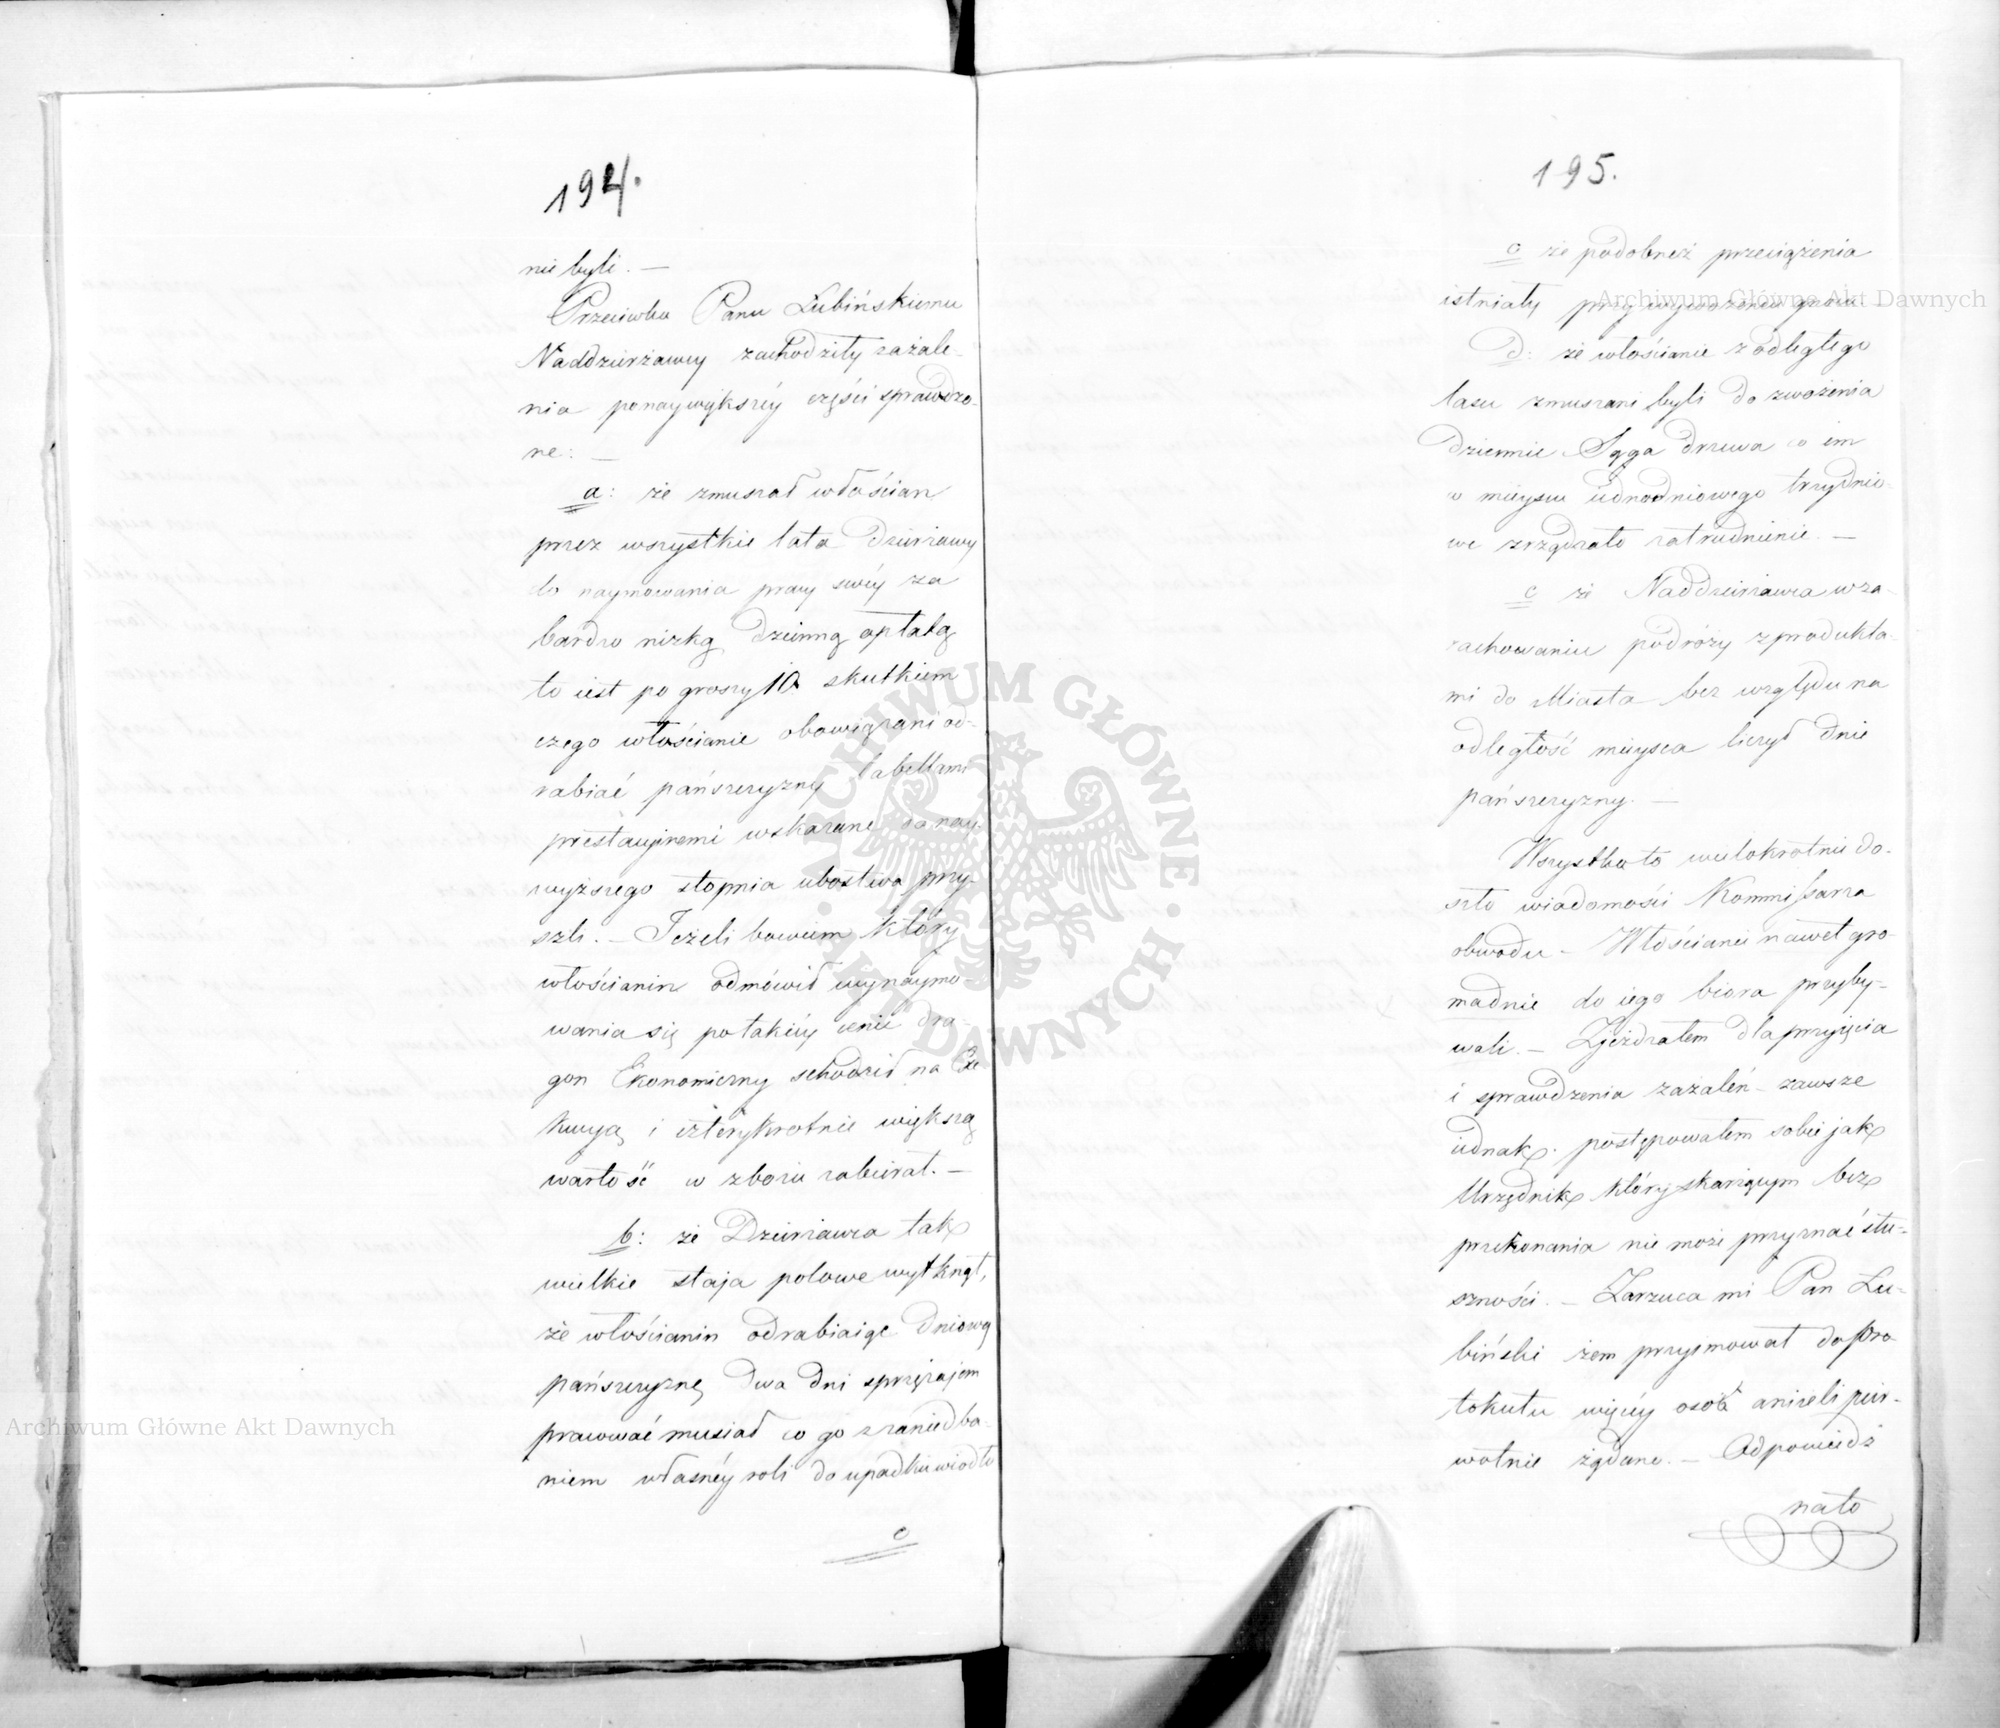 194.
nie byli. —
Przeciwko Panu Łubińskiemu
Naddzierżawcy zachodziły zażale-
nia ponaywiększéy części sprawdzo-
ne: —
a: że zmuszał włościan
przez wszystkie lata Dzierżawy
do naymowania pracy swéy za
bardzo nizką dzienną opłatą
to iest po groszy 10 skutkiem
czego włościanie obowiązani od-
rabiać pańszczyzny tabellami
prestacyinemi wskazane do nay-
wyższego stopnia ubostwa przy-
szli. — Jeżeli bowiem który
włościanin odmówił wynaymo-
wania się po takiéy cenie dra-
gon Ekonomiczny schodził na Exe
kucyą i czterykrotnie większą
wartość w zbożu zabierał. —
b: że Dzierżawca tak
wielkie staja polowe wytknął,
że włościanin odrabiaiąc dniową
pańszczyznę dwa dni sprzężajem
pracować musiał co go z zaniedba-
niem własnéy roli do upadku wiodło
c
195.
c że podobneż przeciążenia
istniały przy wywożeniu gnoiu
D: że włościanie z odległego
lasu zmuszani byli do zwożenia
dziennie Sąga drzewa co im
w mieyscu iednodniowego trzydnio-
we zrządzało zatrudnienie. —
e że Naddzierżawca w za-
rachowaniu podróży z produkta-
mi do Miasta bez względu na
odległość mieysca liczył dnie
pańszczyzny. —
Wszystko to wielokrotnie do-
szło wiadomości Kommissarza
obwodu — Włościanie nawet gro-
madnie do iego biora przyby-
wali. — Zjeżdżałem dla przyięcia
i sprawdzenia zażaleń — zawsze
iednak postępowałem sobie jak
Urzędnik który skarżącym bez
przekonania nie może przyznać słu-
szności. — Zarzuca mi Pan Łu-
biński żem przyimował do pro
tokułu więcéy osób aniżeli pier-
wotnie żądano. — Odpowiedź
na to
Archiwum Główne Akt Dawnych
Archiwum Główne Akt Dawnych
ARCHIWUM GŁÓWNE · AKT DAWNYCH ·